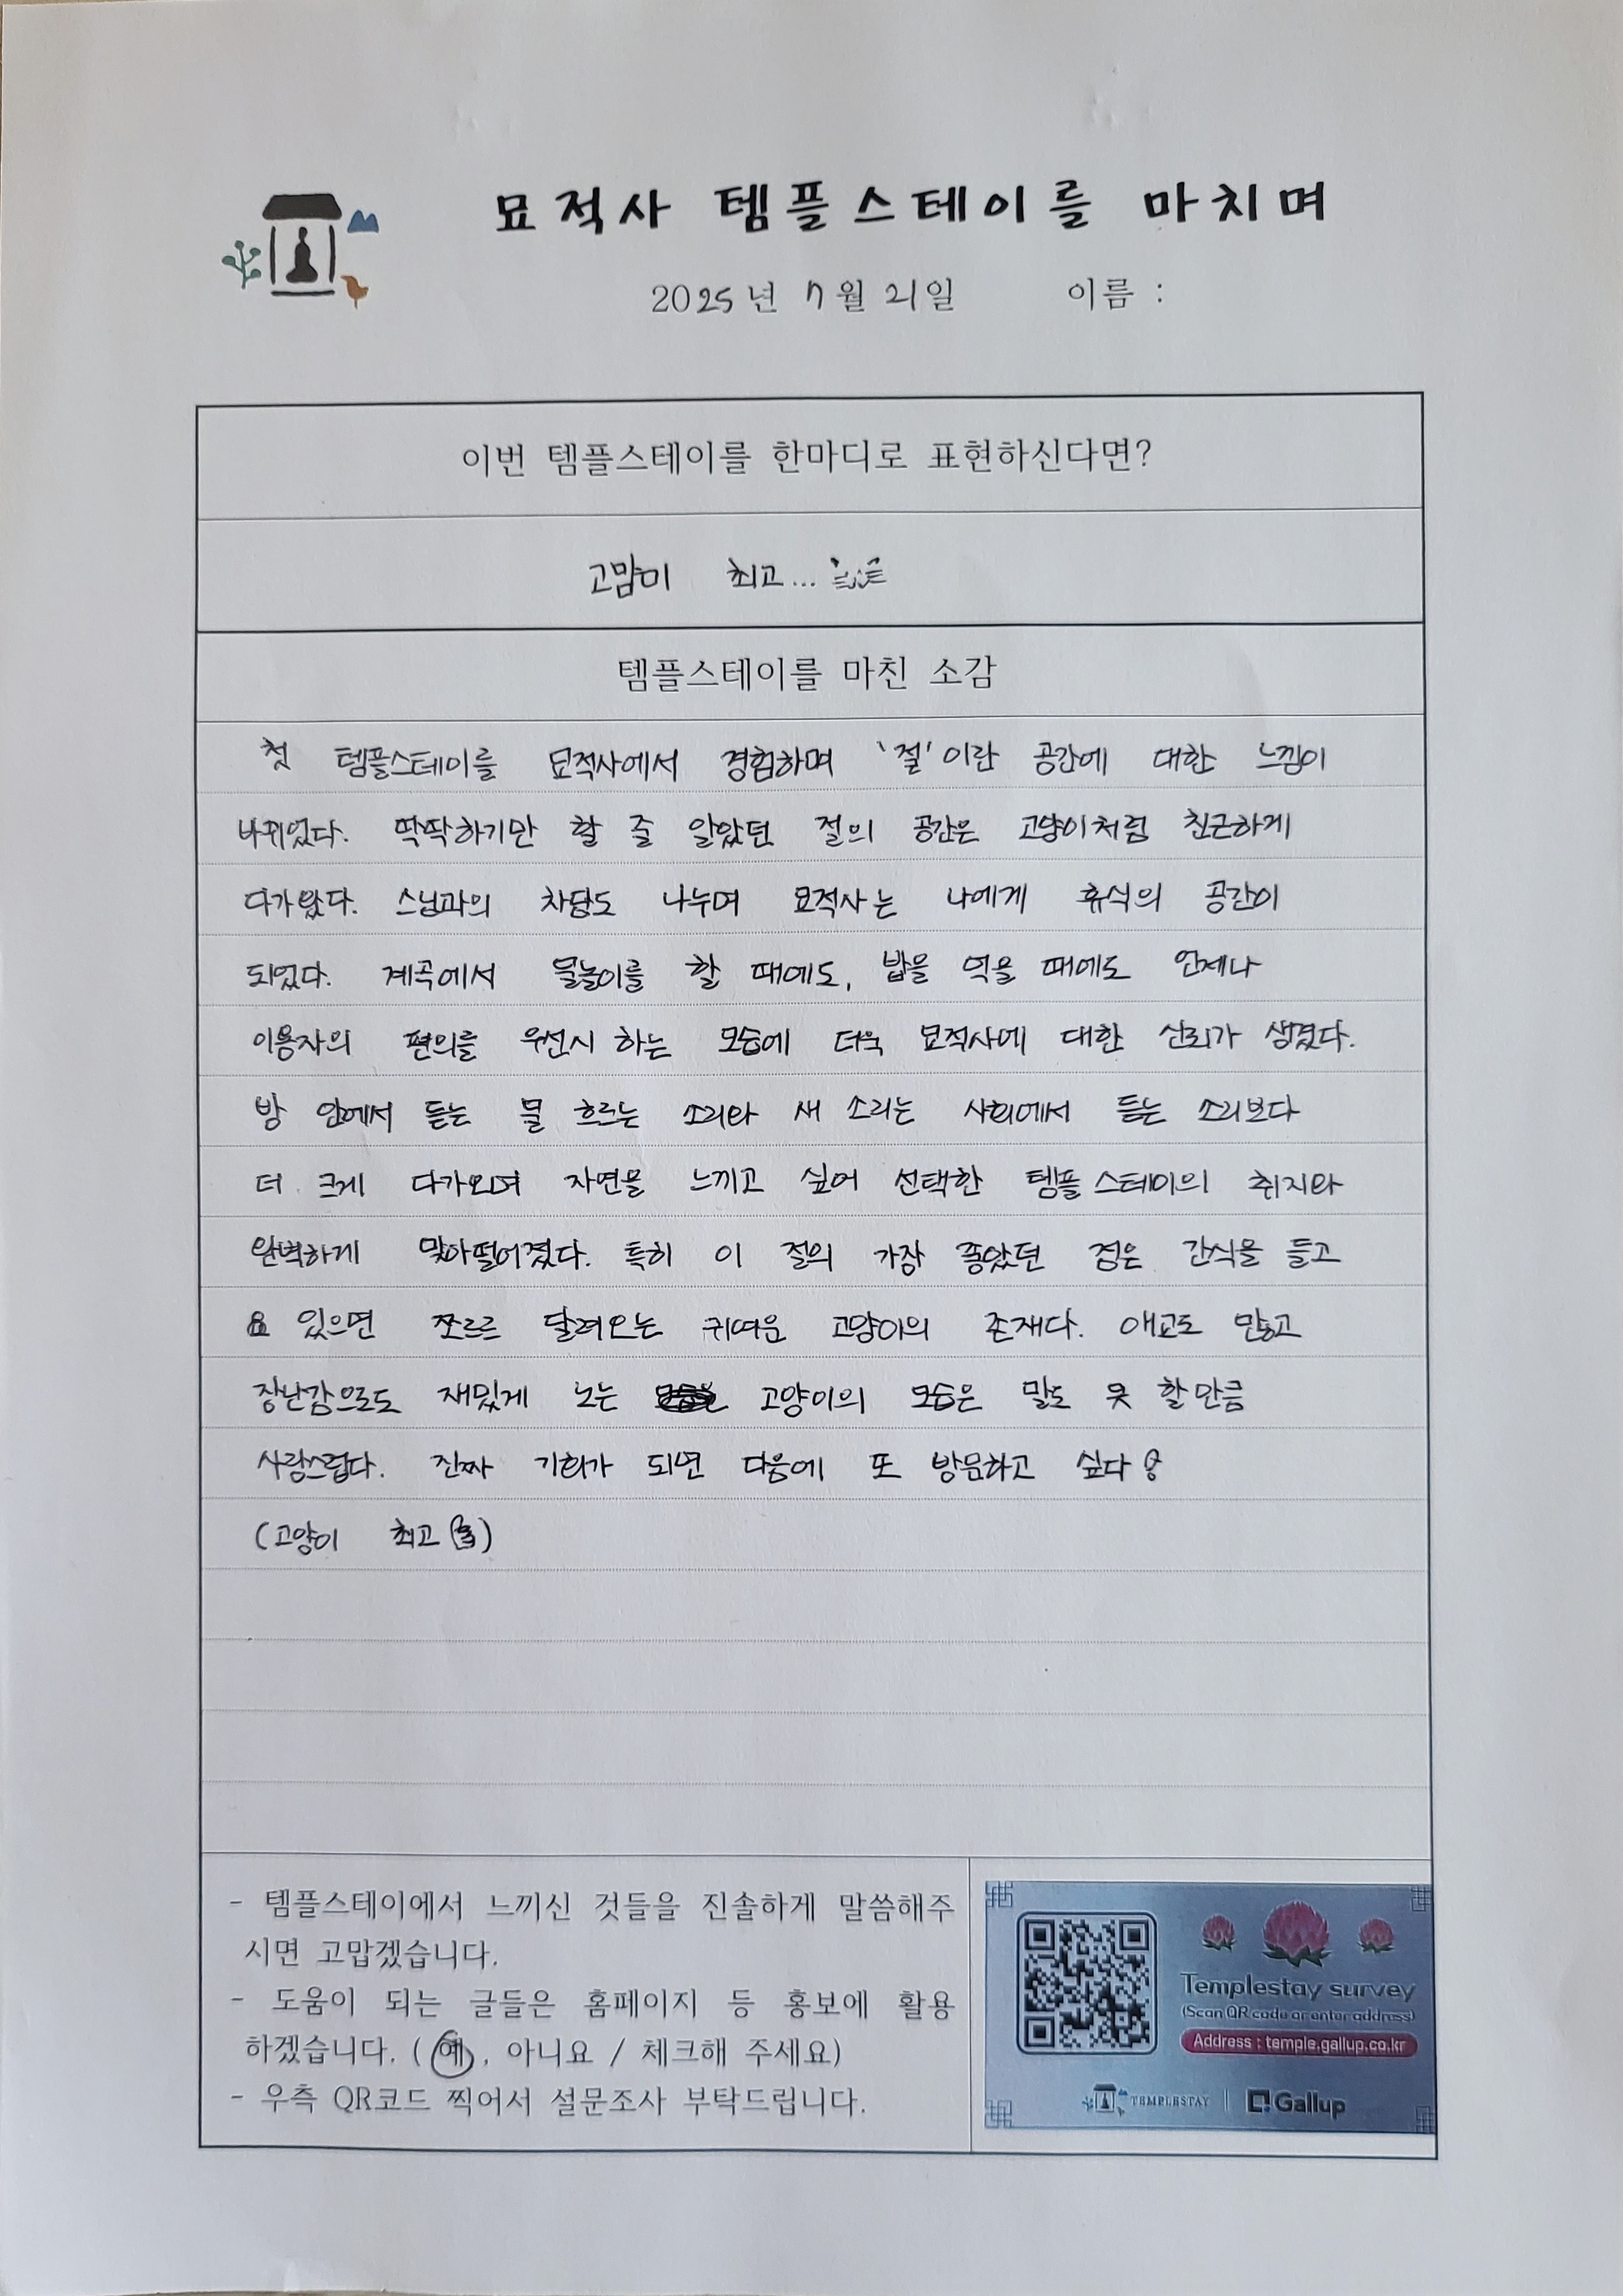 묘적사 템플스테이를 마치며
2025년 7월 21일 이름 :
이번 템플스테이를 한마디로 표현하신다면?
고먐미 최고...
템플스테이를 마친 소감
첫 템플스테이를 묘적사에서 경험하며 '절'이란 공간에 대한 느낌이
바뀌었다. 딱딱하기만 할 줄 알았던 절의 공간은 고양이처럼 친근하게
다가왔다. 스님과의 차담도 나누며 묘적사는 나에게 휴식의 공간이
되었다. 계곡에서 물놀이를 할 때에도, 밥을 먹을 때에도 언제나
이용자의 편의를 우선시 하는 모습에 더욱 묘적사에 대한 신뢰가 생겼다.
방 안에서 듣는 물 흐르는 소리와 새 소리는 사회에서 듣는 소리보다
더 크게 다가오며 자연을 느끼고 싶어 선택한 템플스테이의 취지와
완벽하게 맞아떨어졌다. 특히 이 절의 가장 좋았던 점은 간식을 들고
있으면 쪼르르 달려오는 귀여운 고양이의 존재다. 애교도 많고
장난감으로도 재밌게 노는 고양이의 모습은 말도 못 할만큼
사랑스럽다. 진짜 기회가 되면 다음에 또 방문하고 싶다
(고양이 최고)
- 템플스테이에서 느끼신 것들을 진솔하게 말씀해주
시면 고맙겠습니다.
- 도움이 되는 글들은 홈페이지 등 홍보에 활용
하겠습니다. ( 예 , 아니요 / 체크해 주세요)
- 우측 QR코드 찍어서 설문조사 부탁드립니다.
Templestay survey
(Scan QR code or enter address)
Address : temple.gallup.co.kr
TEMPLESTAY | Gallup